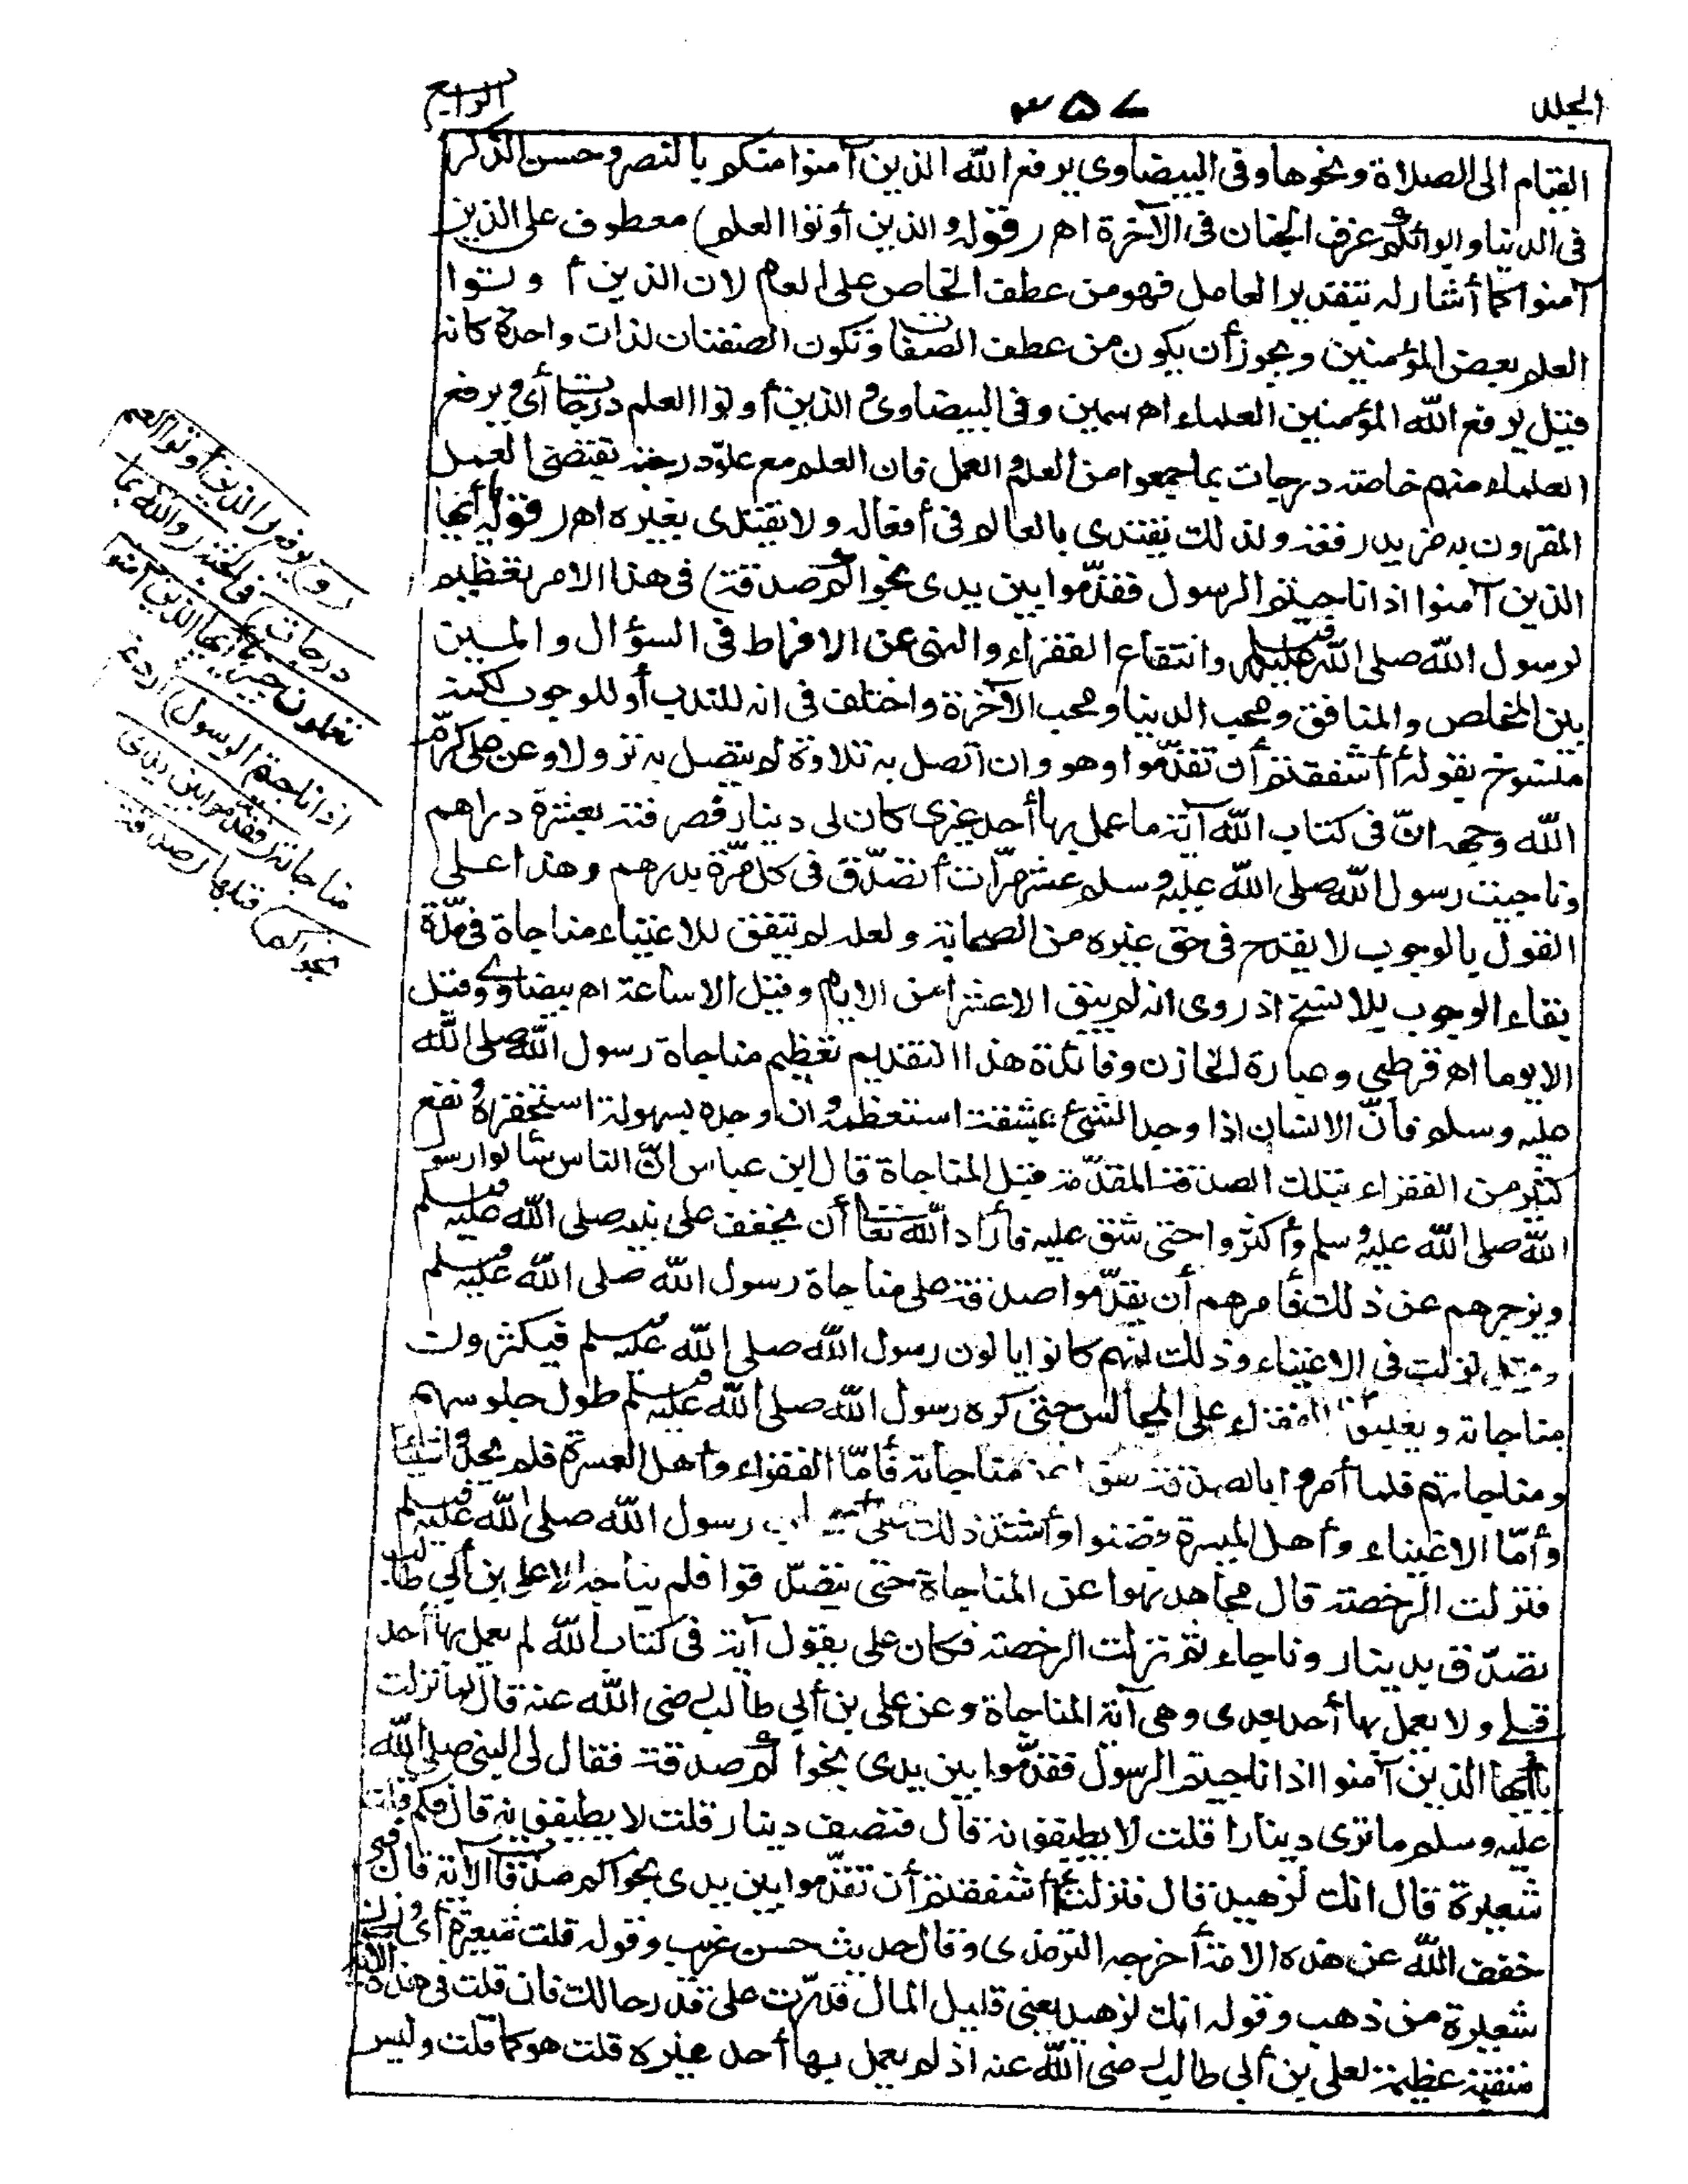 المجلد ٣٥٧ الرابع
القيام الى الصلاة ونحوها وفى البيضاوى يرفع الله الذين آمنوا منكم بالنصر وحسن الذكر
فى الدنيا وايوائكم غرف الجنان فى الآخرة اهـ (قوله والذين أوتوا العلم) معطوف على الذين
آمنوا كما أشار له بتقدير العامل فهو من عطف الخاص على العام لان الذين أوتوا
العلم بعض المؤمنين ويجوز أن يكون من عطف الصفات وتكون الصفتان لذات واحدة كانه
قيل يرفع الله المؤمنين العلماء اهـ سمين وفى البيضاوى والذين أوتوا العلم درجات أى ويرفع
العلماء منهم خاصة درجات بما جمعوا من العلم والعمل فان العلم مع علو درجته تقتضى العمل
المقرون به مزيد رفعة ولذلك يقتدى بالعالم فى أفعاله ولا يقتدى بغيره اهـ (قوله يا أيها
الذين آمنوا اذا ناجيتم الرسول فقدموا بين يدى نجواكم صدقة) فى هذا الامر تعظيم
لرسول الله صلى الله عليه وسلم وانتفاع الفقراء والنهى عن الافراط فى السؤال والمين
بين المخلص والمنافق ومحب الدنيا ومحب الآخرة واختلف فى انه للندب أو للوجوب لكنه
منسوخ بقوله أأشفقتم أن تقدموا وهو وان اتصل به تلاوة لم يتصل به نزولا وعن على كرم
الله وجهه ان فى كتاب الله آية ما عمل بها أحد غيرى كان لى دينار فصرفته بعشرة دراهم
وناجيت رسول الله صلى الله عليه وسلم عشر مرات أتصدق فى كل مرة بدرهم وهذا على
القول بالوجوب لا يقدح فى حق غيره من الصحابة ولعله لم يتفق للاغنياء مناجاة فى مدة
بقاء الوجوب بلا نسخ اذ روى انه لم يبق الا عشرا من الايام وقيل الا ساعة اهـ بيضاوى وقيل
الا يوما اهـ قرطبي وعبارة الخازن وفائدة هذا التقديم تعظيم مناجاة رسول الله صلى الله
عليه وسلم فان الانسان اذا وجد الشئ بمشقة استعظمه وان وجده بسهولة استحقره ونفع
كثير من الفقراء بتلك الصدقة المقدمة قبل المناجاة قال ابن عباس ان الناس سألوا رسول
الله صلى الله عليه وسلم وأكثروا حتى شق عليه فأراد الله تعالى أن يخفف على نبيه صلى الله عليه وسلم
ويزجرهم عن ذلك فأمرهم أن يقدموا صدقة على مناجاة رسول الله صلى الله عليه وسلم
وقيل نزلت فى الاغنياء وذلك انهم كانوا يا لون رسول الله صلى الله عليه وسلم فيكثرون
مناجاته ويغلبون الفقراء على المجالس حتى كره رسول الله صلى الله عليه وسلم طول جلوسهم
ومناجاتهم فلما أمروا بالصدقة مناجاته فأما الفقراء وأهل العسرة فلم يجدوا شيئا
وأما الاغنياء وأهل الميسرة فضنوا وأشتد ذلك على رسول الله صلى الله عليه وسلم
فنزلت الرخصة قال مجاهد نهوا عن المناجاة حتى يتصدقوا فلم يناجه الا على بن أبى طالب
تصدق بدينار وناجاه ثم نزلت الرخصة فكان على يقول آية فى كتاب الله لم يعمل بها أحد
قبلى ولا يعمل بها أحد بعدى وهى آية المناجاة وعن على بن أبى طالب رضى الله عنه قال لما نزلت
يا أيها الذين آمنوا اذا ناجيتم الرسول فقدموا بين يدى نجواكم صدقة فقال لى النبى صلى الله
عليه وسلم ما ترى دينارا قلت لا يطيقونه قال فنصف دينار قلت لا يطيقونه قال فكم قلت
شعيرة قال انك لزهيد قال فنزلت أأشفقتم أن تقدموا بين يدى نجواكم صدقات الآية قال فبى
خفف الله عن هذه الامة أخرجه الترمذى وقال حديث حسن غريب وقوله قلت شعيرة أى وزن
شعيرة من ذهب وقوله انك لزهيد يعنى قليل المال قدرت على قدر حالك فان قلت فى هذه الآية
منقبة عظيمة لعلى بن أبى طالب رضى الله عنه اذ لم يعمل بها أحد غيره قلت هو كما قلت وليس
(و) يرفع (الذين أوتوا العلم
درجات) فى الجنة (والله بما
تعملون خبير يا أيها الذين آمنوا
اذا ناجيتم الرسول) أردتم
مناجاته (فقدموا بين يدى
نجواكم) قبلها (صدقة